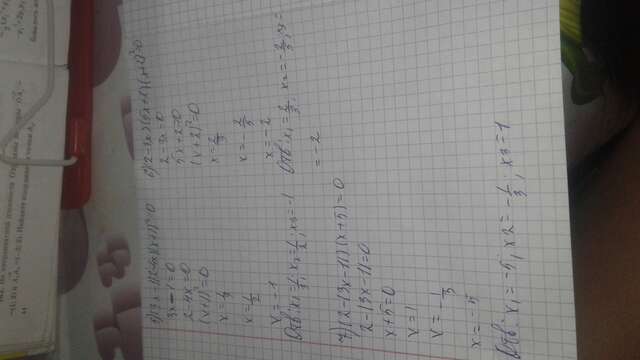 5) (3x-1)(2-4x)(x+1)²=0
3x-1=0
2-4x=0
(x+1)²=0
x=1/3
x=1/2
x=-1
Отв: x₁=1/3; x₂=1/2; x3=-1
6) (2-3x)(5x+2)(x+2)²=0
2-3x=0
5x+2=0
(x+2)²=0
x=2/3
x=-2/5
x=-2
Отв: x₁=2/3; x₂=-2/5; x3=
=-2
7) (2-|3x-1|)(x+5)=0
2-|3x-1|=0
x+5=0
x=1
x=-1/3
x=-5
Отв: x₁=-5, x2=-1/3; x3=1